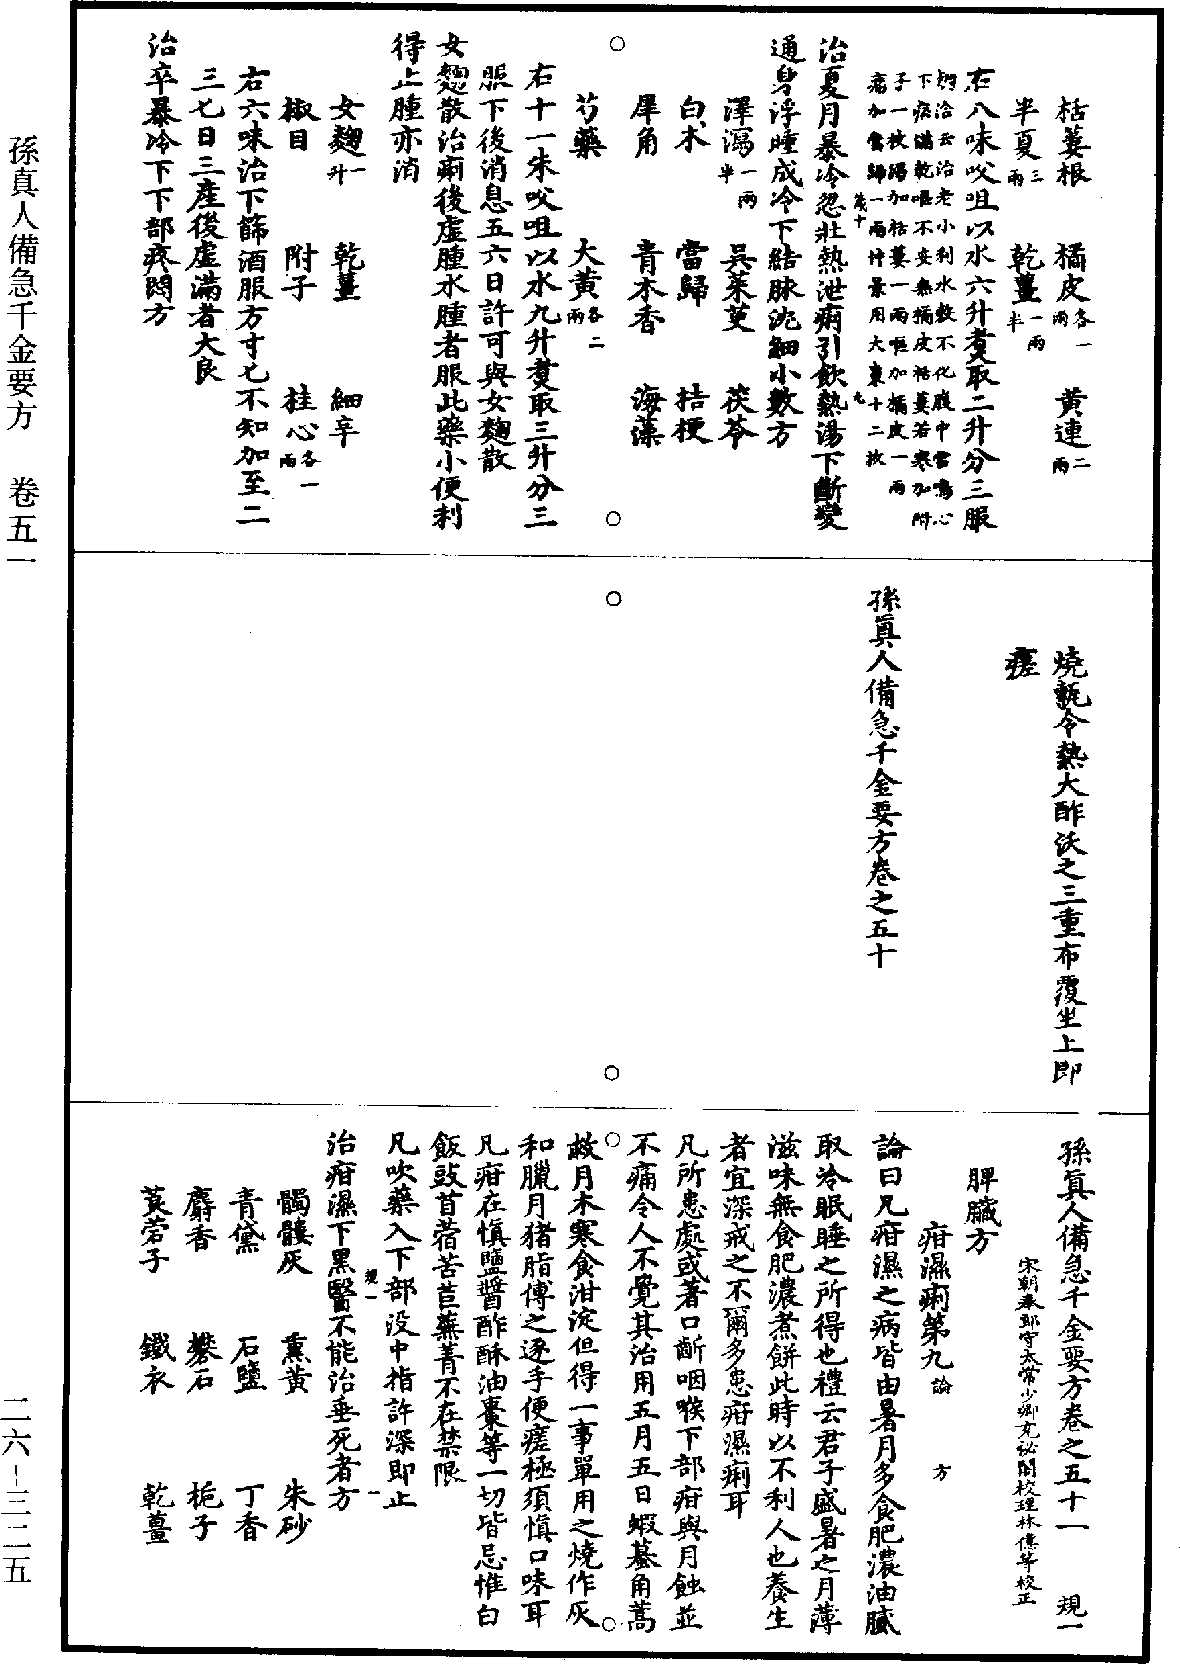 栝蔞根 橘皮各一兩 黃連二兩
半夏三兩 乾薑一兩半
右八味㕮咀以水六升煑取二升分三服
治云治老小利水穀不化腹中雷鳴心
下痞滿乾嘔不安無橘皮栝蔞若寒加附
子一枚渴加栝蔞一兩嘔加橘皮一兩
痛加當歸一兩竹景用大棗十二枚
治夏月暴冷忽壯熱泄痢引飲熱湯下斷變
通身浮腫成冷下結脉沈細小數方
澤瀉一兩半 吳茱萸 茯苓
白朮 當歸 桔梗
犀角 青木香 海藻
芍藥 大黃各二兩
右十一味㕮咀以水九升煑取三升分三
服下後消息五六日許可與女麴散
女麴散治痢後虛腫水腫者服此藥小便利
得止腫亦消
女麴一升 乾薑 細辛
椒目 附子 桂心各一兩
右六味治下篩酒服方寸匕不知加至二
三匕日三産後虛滿者大良
治卒暴冷下下部疼悶方
燒甎令熱大酢沃之三重布覆坐上即
瘥
孫真人備急千金要方卷之五十
孫真人備急千金要方卷之五十一 規一
宋朝奉郎守太常少卿充祕閣校理林億等校正
脾臟方
疳濕痢第九論 方
論曰凡疳濕之病皆由暑月多食肥濃油膩
取冷眠睡之所得也禮云君子盛暑之月薄
滋味無食肥濃煮餅此時以不利人也養生
者宜深戒之不爾多患疳濕痢耳
凡所患處或著口齗咽喉下部疳與月蝕並
不痛令人不覺其治用五月五日蝦蟇角蒿
救月木寒食泔淀但得一事單用之燒作灰
和臘月猪脂傅之逐手便瘥極須慎口味耳
凡疳在慎鹽醬酢酥油棗等一切皆忌惟白
飯豉苜蓿苦苣蕪菁不在禁限
凡吹藥入下部没中指許深即止
規一 一
治疳濕下黑醫不能治垂死者方
髑髏灰 熏黃 朱砂
青黛 石鹽 丁香
麝香 礬石 梔子
莨菪子 鐵衣 乾薑
孫真人備急千金要方 卷五一
二六－三二五